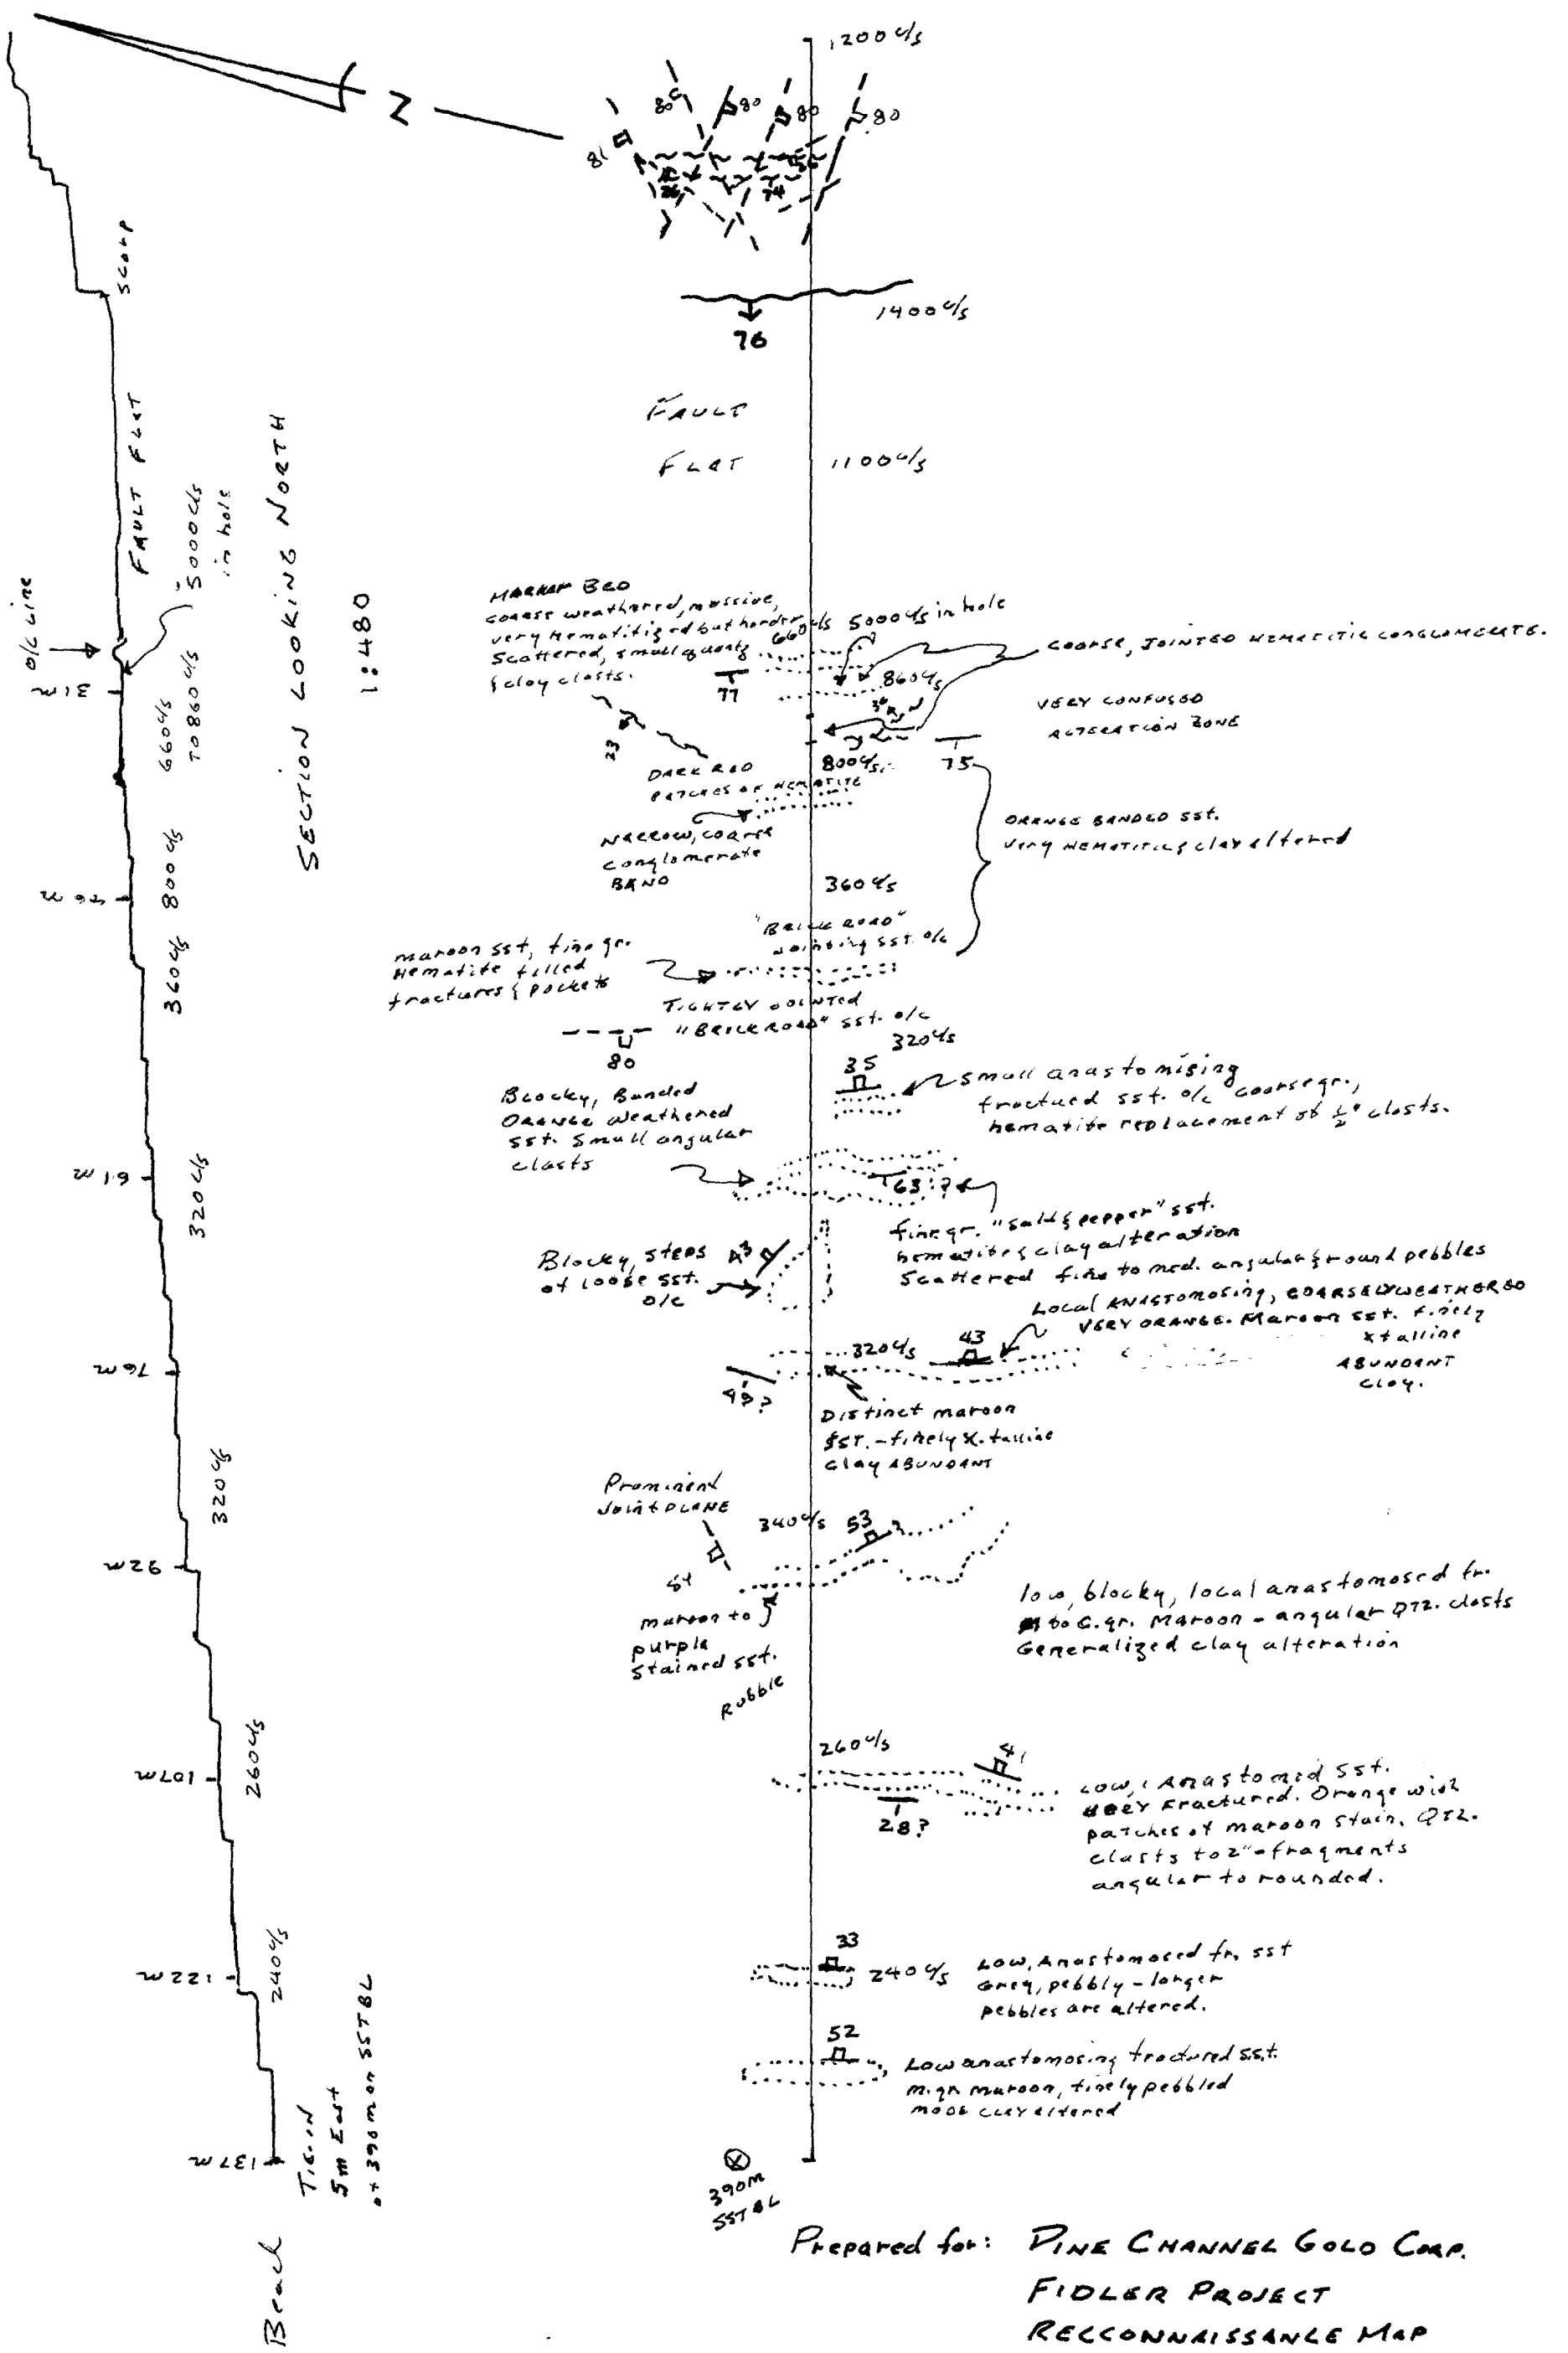 Z
1200 c/s
80
80
80
80
81
26
74
1400 c/s
76
SCARP
FAULT
FLAT
1100 c/s
FAULT FLAT
5000 c/s
in hole
SECTION LOOKING NORTH
1:480
O/C LINE
31 m
660 c/s
TO 860 c/s
MARKER BED
coarse weathered, massive,
very hematitized but harder
Scattered, small quartz
& clay clasts.
660 c/s
5000 c/s in hole
COARSE, JOINTED HEMATITIC CONGLOMERATE.
77
860 c/s
VERY CONFUSED
ALTERATION ZONE
23
DARK RED
PATCHES OF HEMATITE
800 c/s
75
NARROW, COARSE
conglomerate
BAND
ORANGE BANDED SST.
very HEMATITIC & clay altered
46 m
800 c/s
360 c/s
360 c/s
"BRICK ROAD"
Jointing SST. o/c
maroon sst, fine gr.
Hematite filled
fractures & pockets
TIGHTLY JOINTED
"BRICK ROAD" sst. o/c
80
320 c/s
35
small anastomising
fractued sst. o/c coarse gr.,
hematite replacement of ½" clasts.
Blocky, Banded
ORANGE weathered
sst. Small angular
clasts
61 m
320 c/s
63?
fine gr. "salt & pepper" sst.
hematite & clay alteration
Scattered fine to med. angular & round pebbles
Blocky, steps
of loose sst.
o/c
43
Local ANASTOMOSING, COARSELY WEATHERED
VERY ORANGE. Maroon sst. finely
xtalline
ABUNDANT
clay.
76 m
320 c/s
43
49?
Distinct maroon
SST. - finely x.talline
clay ABUNDANT
320 c/s
Prominent
Joint PLANE
340 c/s
53
92 m
84
maroon to
purple
stained sst.
Rubble
low, blocky, local anastomosed fr.
M to C. gr. Maroon - angular QTZ. clasts
Generalized clay alteration
107 m
260 c/s
260 c/s
41
28?
LOW, Anastomod sst.
VERY Fractured. Orange with
patches of maroon stain. QTZ.
clasts to 2" - fragments
angular to rounded.
122 m
240 c/s
33
240 c/s
Low, Anastomosed fr. sst
Grey, pebbly - larger
pebbles are altered.
52
Low anastomosing fractured s.s.t.
m. gr. maroon, finely pebbled
mod. CLAY altered
137 m
TIE-IN
5m East
of 390m on SSTBL
390m
SST BL
Beach
Prepared for: PINE CHANNEL GOLD CORP.
FIDLER PROJECT
RECCONNAISSANCE MAP